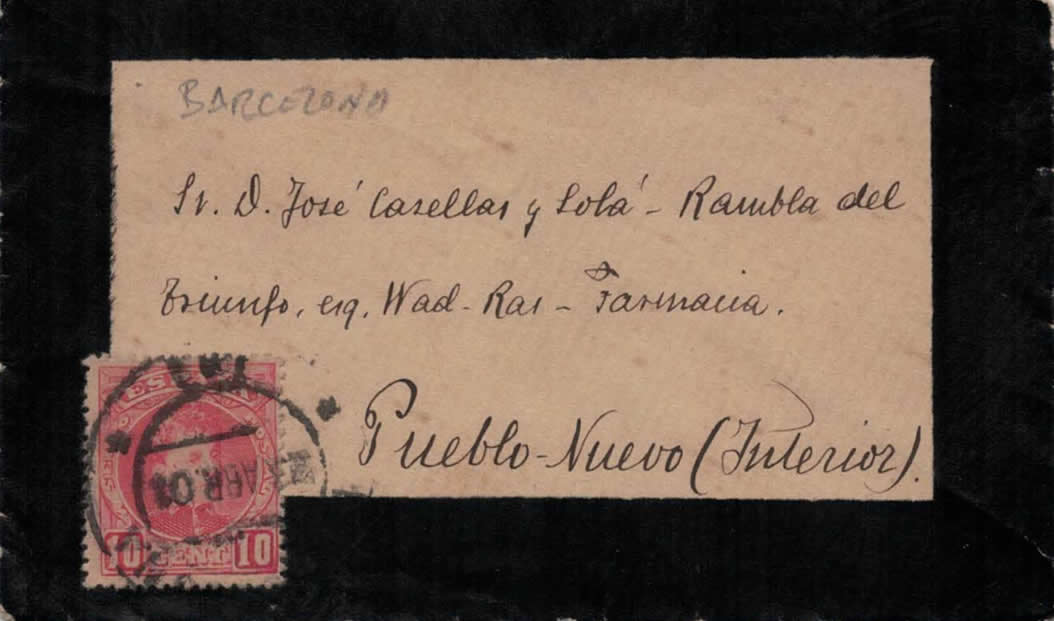 BARCELONA
Sr. D. José Casellas y Solá - Rambla del
Triunfo, esq. Wad-Ras - Farmacia.
Pueblo-Nuevo (Interior).
ESPAÑA
ABR. 01
10 CENT 10